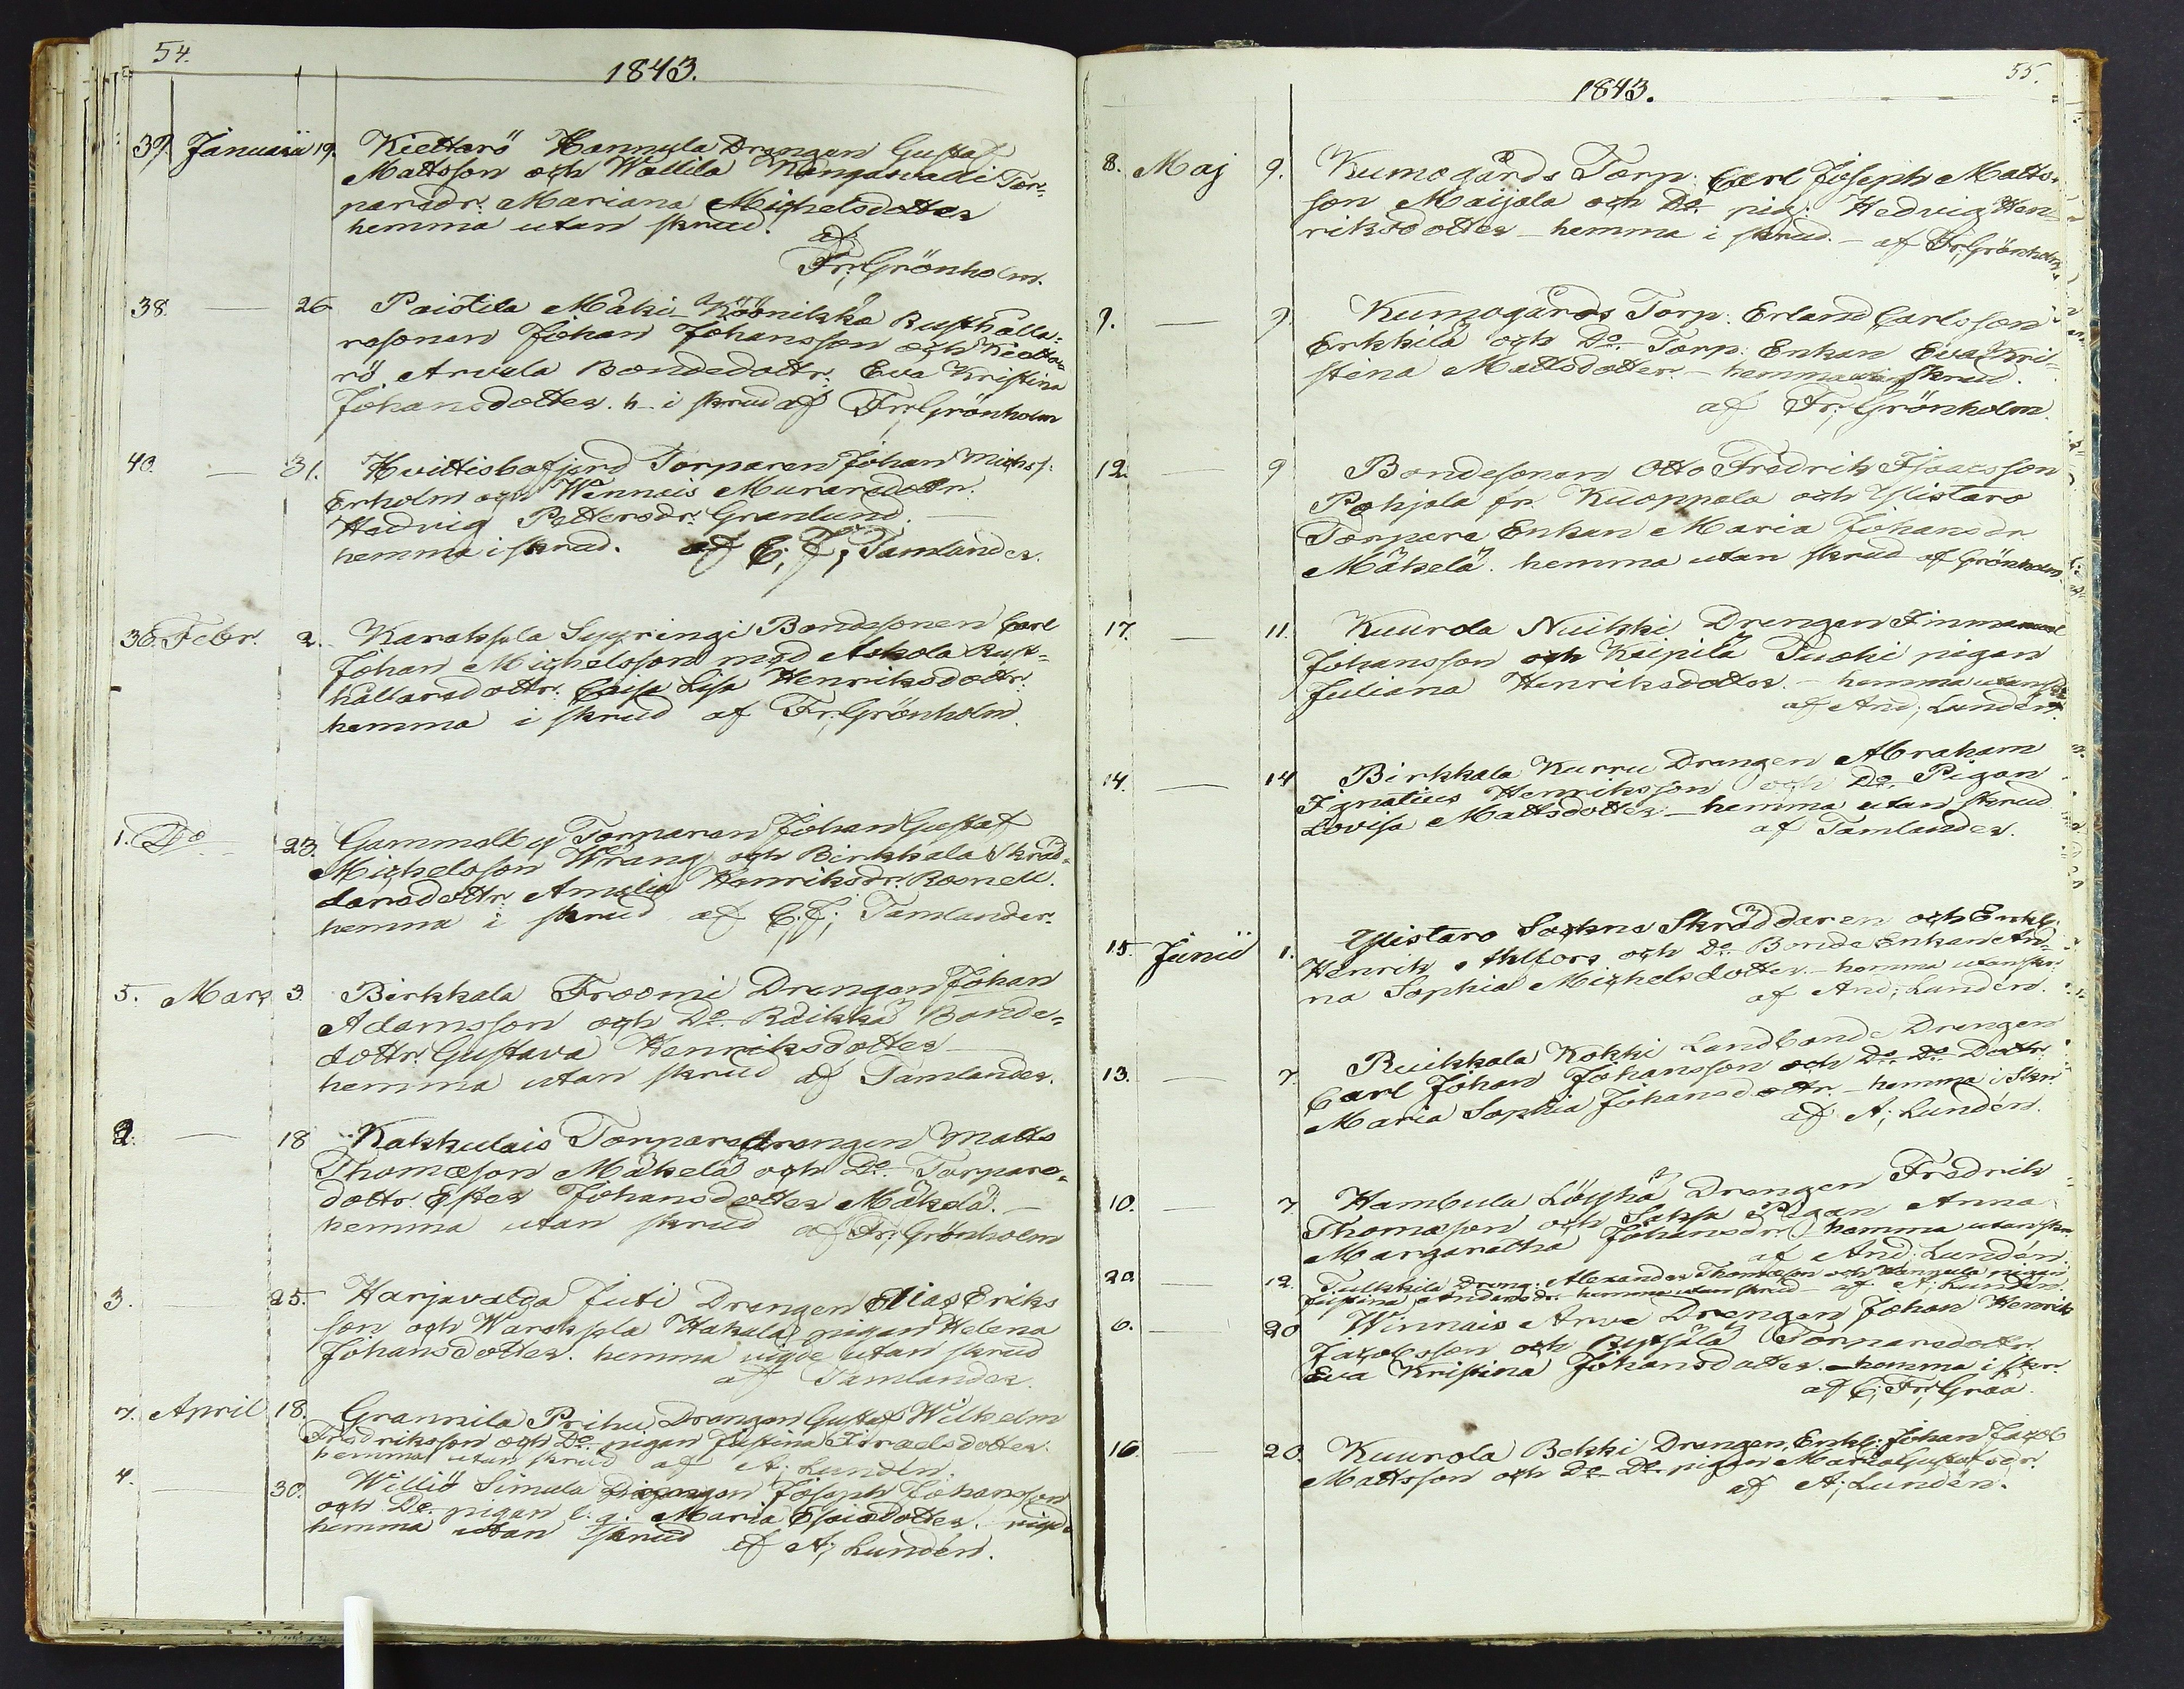 54.
1843.
39. Januarii 19. Kiettarö Hannula Drengen Gustaf
Mattsson och Wallila Kangasvalli Tor-
paredr. Mariana Michelsdotter
hemma utan skrud. af
Fr; Grönholm.
38. — 26 Paistila Mäki-Köönikkä Rusthålla-
resonen Johan Johansson och Kietta-
rö Arvela Bondedottr: Eva Kristina
Johansdotter. h. i skrud af Fr; Grönholm
40. — 31. Huittisbofjerd Torparen Johan Michss:
Erholm och Wennais Muraredottr.
Hedvig Pettersdr. Granlund.
hemma i skrud. af C; J; Tamlander.
36. Febr. 2. Karaksela Seppringi Bondesonen Carl
Johan Michelsson med Askola Rust-
hållaredottr. Caisa Lisa Henriksdottr.
hemma i skrud af Fr; Grönholm.
1. Do 23. Gammelby Torparen Johan Gustaf
Michelsson Wrang och Birkkala Skräd-
daredottr. Amalia Henriksdr. Rosnell.
hemma i skrud af C; J; Tamlander.
5. Mars 3 Birkkala Froomi Drengen Johan
Adamsson och Do Räikkä Bonde-
dottr. Gustava Henriksdotter —
hemma utan skrud af Tamlander.
2. — 18 Kakkulais Torparedrengen Matts
Thomæson Mäkelä och Do Torpare-
dottr. Ester Johansdotter Mäkelä. —
hemma utan skrud af Fr; Grönholm
3. 25. Harjavalda Juti Drengen Elias Eriks
son och Wareksela Hakula pigan Helena
Johansdotter. hemma vigde utan skrud
af Tamlander.
7. April 18. Grannila Prihu Drengen Gustaf Wilhelm
Fredriksson och Do pigan Justina Israelsdotter
hemma utan skrud af A; Lundén.
4. — 30. Williö Simula Drengen Joseph Johansson
och Do pigan Maria Esaiædotter. vigde
hemma utan skrud af A; Lundén.
55.
1843.
8. Maj 9. Kumogårds Torp: Carl Joseph Matts-
son Maijala och Do pig: Hedvig Hen-
riksdotter — hemma i skrud. — af Fr; Grönholm.
9. — 9. Kumogårds Torp: Erland Carlsson
Erkkilä och Do Torp: Enkan Eva Kri-
stina Mattsdotter. — hemma utan skrud.
af Fr; Grönholm.
12. — 9 Bondesonen Otto Fredrik Isaacsson
Pohjala fr. Kuoppala och Ylistaro
Torpare Enkan Maria Johansdr.
Mäkelä. hemma utan skrud af Grönholm.
17. — 11. Kuurola Nuikki Drengen Immanuel
Johansson och Keipilä Tuoki pigan
Juliana Henriksdotter. — hemma utan skr
af And; Lundén.
14. — 14 Birkkala Kurru Drengen Abraham
Ignatius Henriksson och Do Pigan
Lovisa Mattsdotter — hemma utan skrud
af Tamlander.
15. Junii 1. Ylistaro Sochne Skräddaren och Enkl:
Henrik Ahlfors och Do Bonde Enkan An-
na Sophia Michelsdotter. — hemma utan skr.
af And; Lundén.
13. — 7. Ruikkala Kokki Landbonde Drengen
Carl Johan Johansson och Do Do Dottr.
Maria Sophia Johansdottr. — hemma i Skr.
af A; Lundén.
10. — 7. Hambula Löyhä Drengen Fredrik
Thomæson och Saksa Pigan Anna
Margaretha Johansdr. hemma utan skr.
af And; Lundén
20. — 12. Tulkkila Dreng: Alexander Thomæson och Hannula pigan
Justina Andersdr. hemma utan skrud — af A; Lundén.
6. — 20 Winnais Arwe Drengen Johan Henrik
Jacobsson och Torparedottr.
Eva Kristina Johansdotter. — hemma i skr.
af C; Fr; Graá.
16. 20. Kuurola Bekki Drengen, Enkl: Johan Jacob
Mattsson och Do Do pigan Maria Gustafsdr.
af A; Lundén.